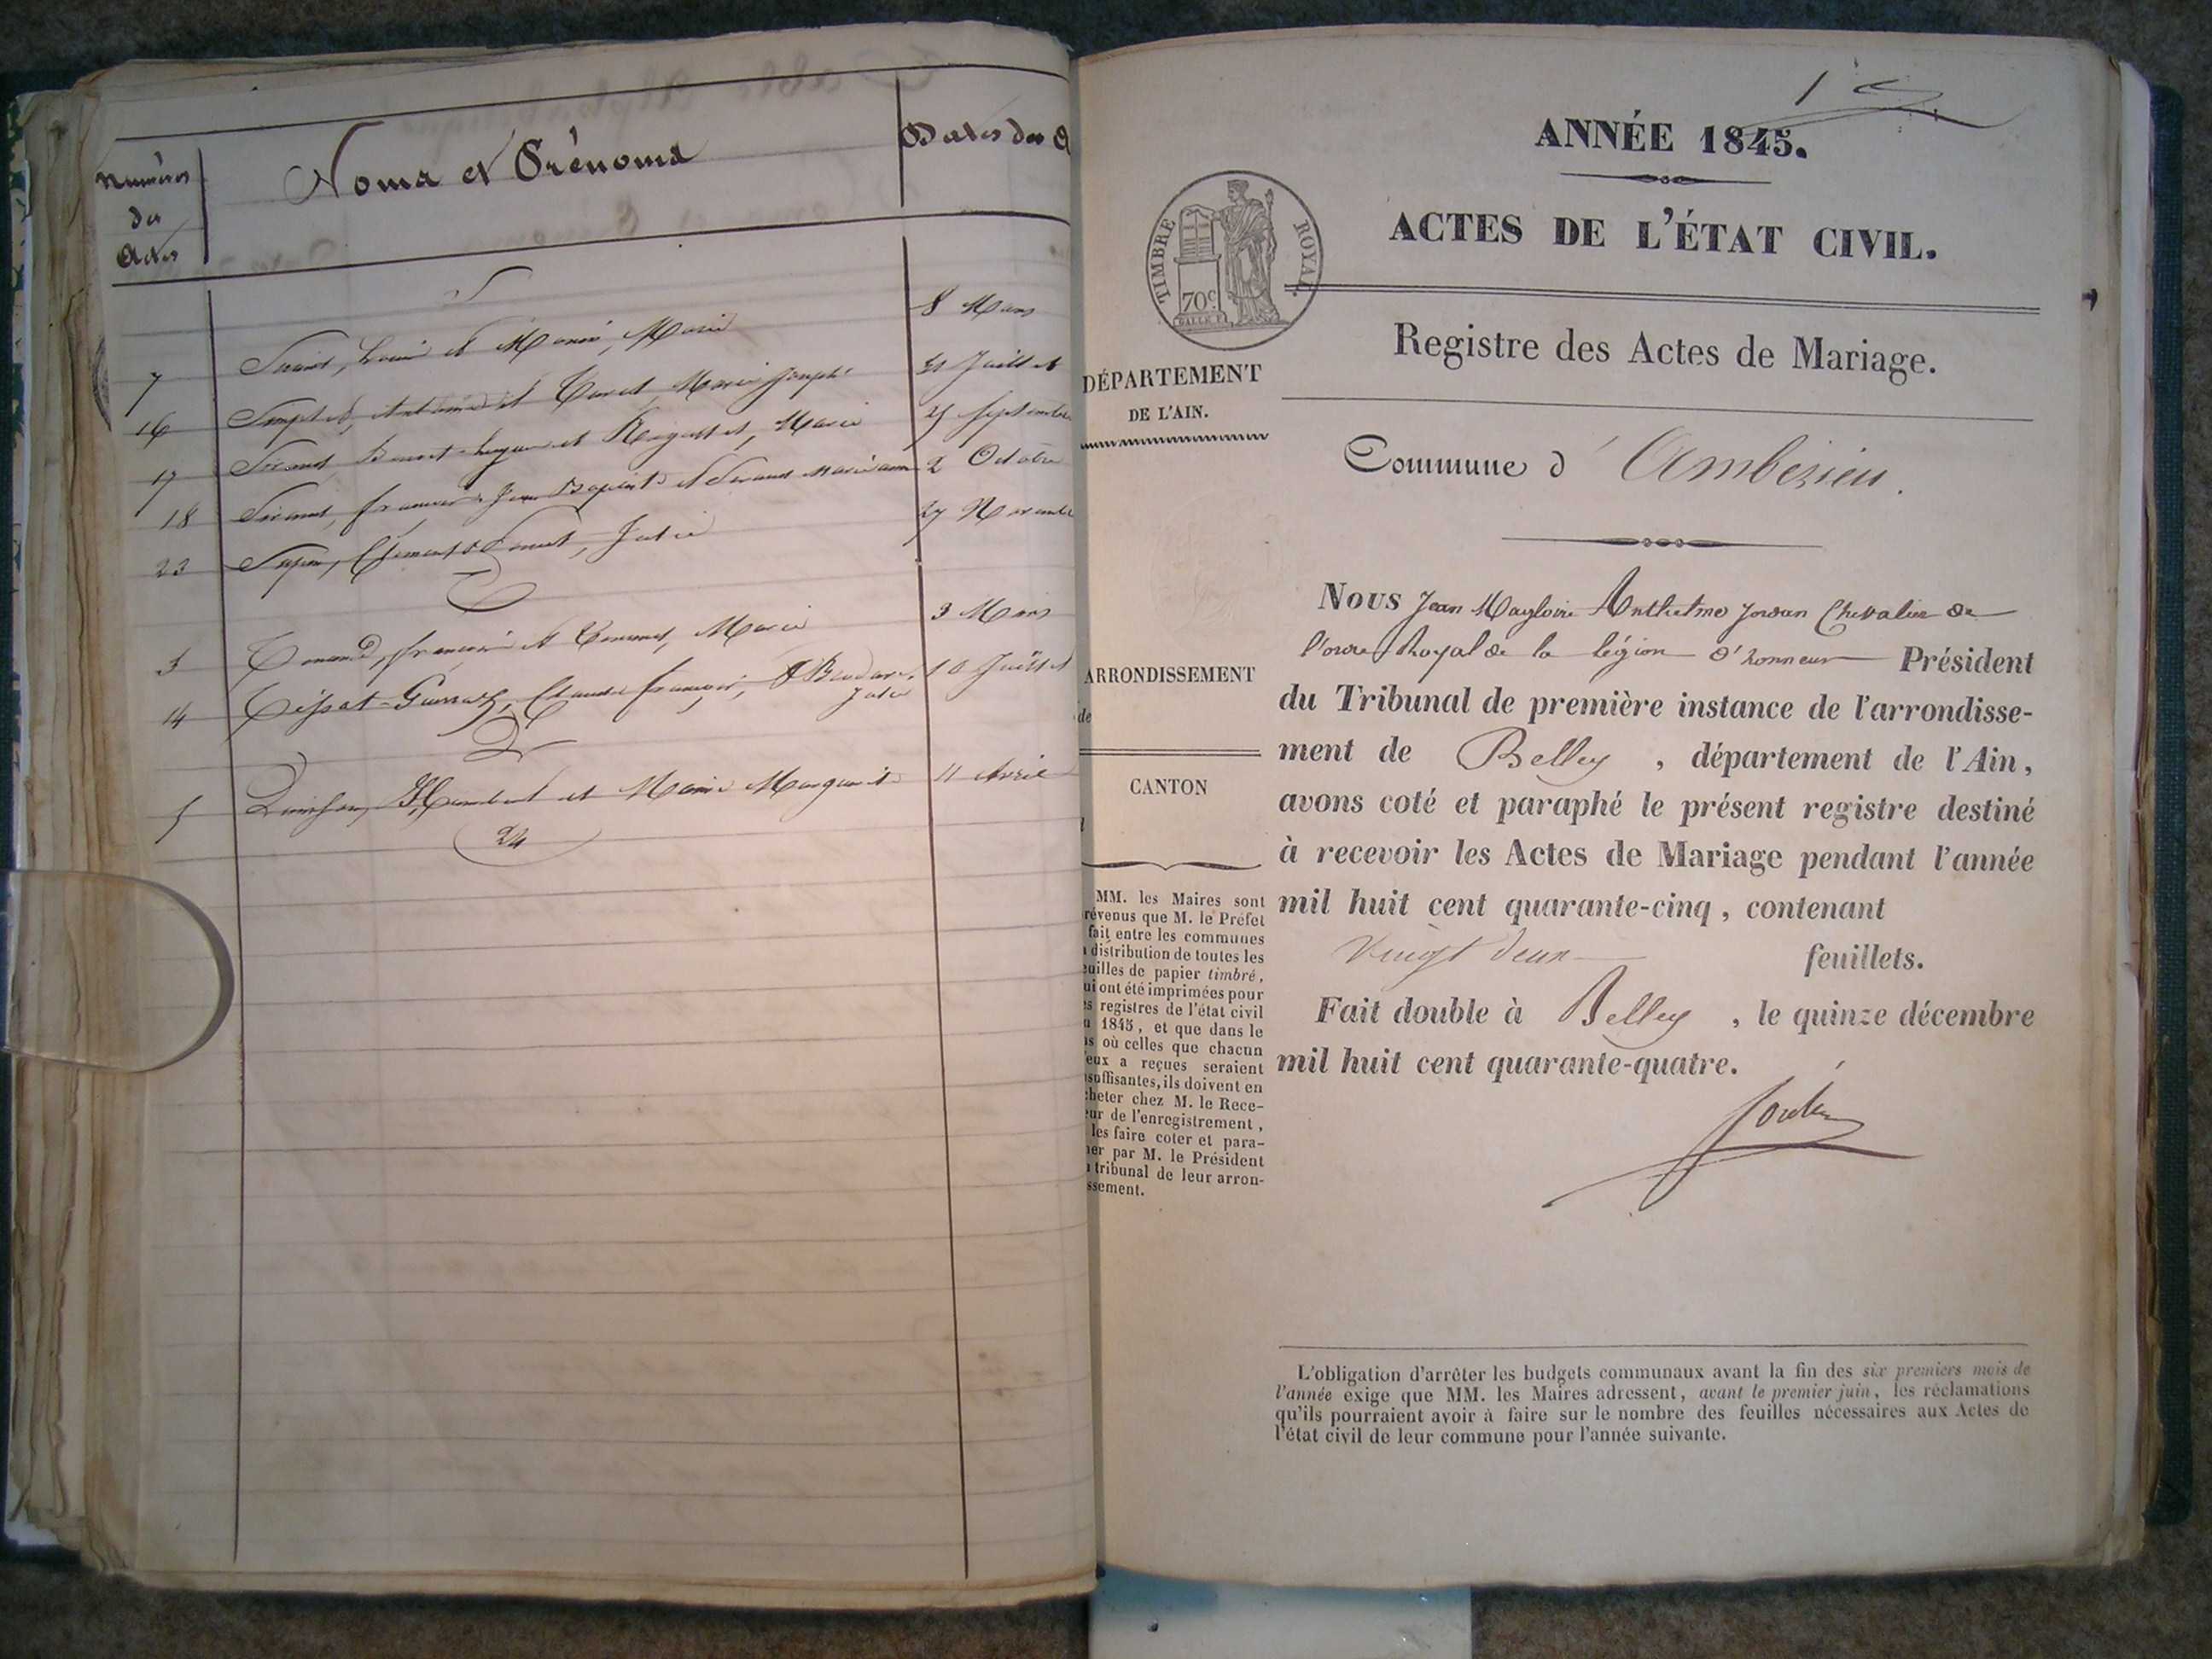 Numéros
des
Actes
Noms et Prénoms
Dates des A
S
7 Louis et Marie 8 Mars
16 et Marie Josephe 21 Juillet
17 et Marie 25 Septembre
18 françois Jean Baptiste et 2 Octobre
23 Julie 27 Novembre
T
3 françois et Marie 3 Mars
14 Tissot Claude françois, Julie 10 Juillet
5 Humbert et Marguerite 11 Avril
24
ANNÉE 1845.
ACTES DE L'ÉTAT CIVIL.
TIMBRE ROYAL.
70c.
DÉPARTEMENT
DE L'AIN.
Registre des Actes de Mariage.
Commune d' Ambérieu.
ARRONDISSEMENT
de
CANTON
MM. les Maires sont
révenus que M. le Préfet
fait entre les communes
distribution de toutes les
euilles de papier timbré,
ui ont été imprimées pour
es registres de l'état civil
1845, et que dans le
s où celles que chacun
eux a reçues seraient
suffisantes, ils doivent en
cheter chez M. le Rece-
eur de l'enregistrement,
les faire coter et para-
her par M. le Président
tribunal de leur arron-
ssement.
Nous Jean Magloire Anthelme Jordan Chevalier de
l'ordre Royal de la légion d'honneur Président
du Tribunal de première instance de l'arrondisse-
ment de Belley, département de l'Ain,
avons coté et paraphé le présent registre destiné
à recevoir les Actes de Mariage pendant l'année
mil huit cent quarante-cinq, contenant
vingt deux feuillets.
Fait double à Belley, le quinze décembre
mil huit cent quarante-quatre.
Jordan
L'obligation d'arrêter les budgets communaux avant la fin des six premiers mois de
l'année exige que MM. les Maires adressent, avant le premier juin, les réclamations
qu'ils pourraient avoir à faire sur le nombre des feuilles nécessaires aux Actes de
l'état civil de leur commune pour l'année suivante.